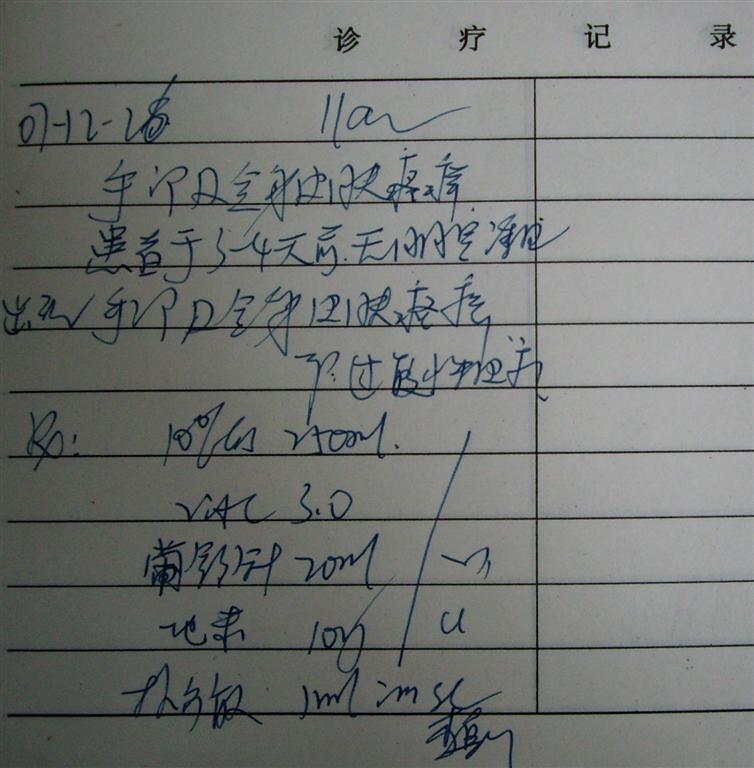 诊疗记录
07-12-28 11am
手部及全身皮肤瘙痒
患者于3-4天前无明显
出现手部及全身皮肤瘙痒
过敏性皮
Rp: 10%GS 250ml
VitC 3.0
葡钙针 20ml
地米 10mg
扑尔敏 1ml im st